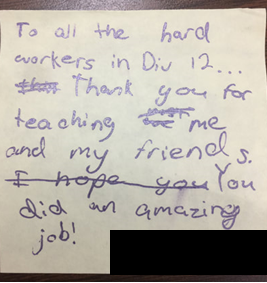 To all the hard
workers in Div 12...
Thank you for
teaching me
and my friends.
I hope you You
did an amazing
job!